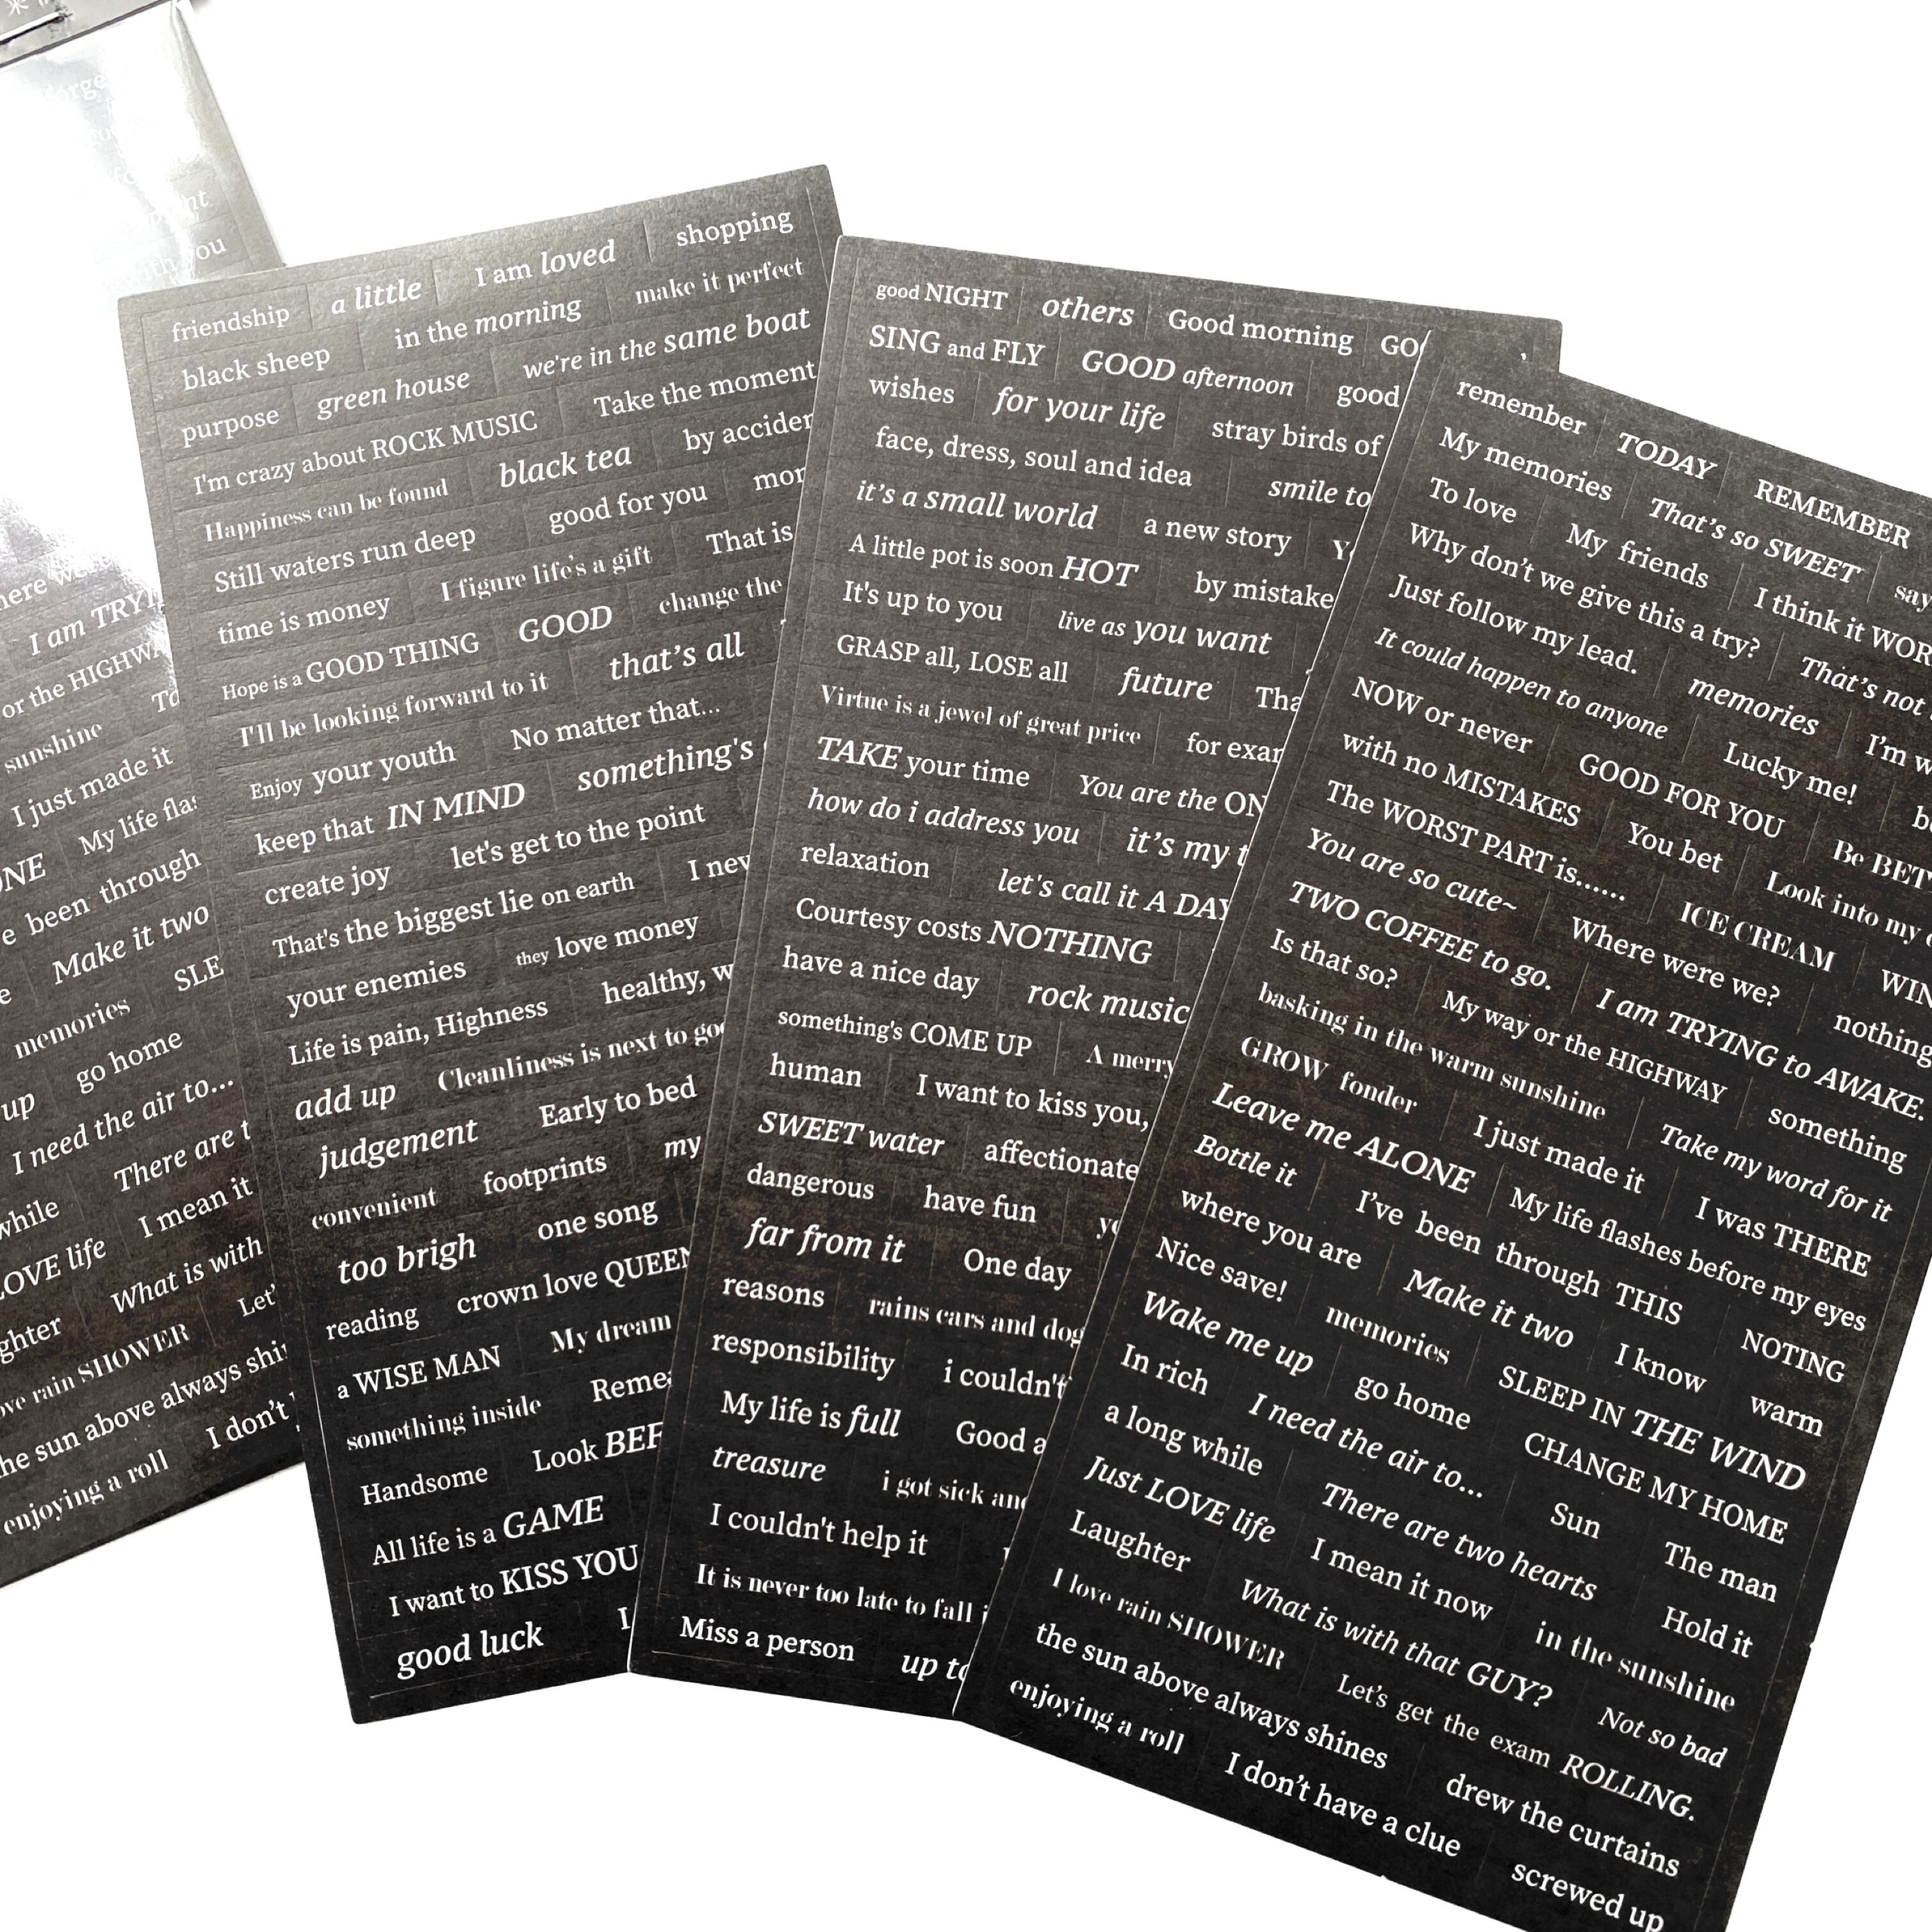 with you
I am
or the
sunshine
I just made it
My life
been through
Make it two
memories
up go home
I need the air to...
while There are
LOVE life I mean it
What is with
rain SHOWER Let'
the sun above always
enjoying a roll I don't
friendship a little I am loved shopping
black sheep in the morning make it perfect
purpose green house we're in the same boat
I'm crazy about ROCK MUSIC Take the moment
Happiness can be found black tea by
Still waters run deep good for you
time is money I figure life's a gift That is
Hope is a GOOD THING GOOD change the
I'll be looking forward to it that's all
Enjoy your youth No matter that...
keep that IN MIND something's
create joy let's get to the point
That's the biggest lie on earth I
your enemies they love money
Life is pain, Highness healthy,
add up Cleanliness is next to
judgement Early to bed
convenient footprints my
too brigh one song
reading crown love
a WISE MAN My dream
something inside
Handsome Look
All life is a GAME
I want to KISS YOU
good luck I
good NIGHT others Good morning
SING and FLY GOOD afternoon good
wishes for your life stray birds of
face, dress, soul and idea smile to
it's a small world a new story
A little pot is soon HOT by mistake
It's up to you live as you want
GRASP all, LOSE all future
Virtue is a jewel of great price for
TAKE your time You are the
how do i address you it's my
relaxation let's call it A DAY
Courtesy costs NOTHING
have a nice day rock music
something's COME UP A merry
human I want to kiss you,
SWEET water affectionate
dangerous have fun
far from it One day
reasons rains cars and
responsibility i couldn't
My life is full Good
treasure i got sick
I couldn't help it
It is never too late to fall
Miss a person up
remember TODAY REMEMBER
My memories That's so SWEET say
To love My friends I think it
Why don't we give this a try? That's not
Just follow my lead. memories I'm
It could happen to anyone Lucky me!
NOW or never GOOD FOR YOU Be
with no MISTAKES You bet Look into my
The WORST PART is...... ICE CREAM
You are so cute~ Where were we? nothing
TWO COFFEE to go. I am TRYING to AWAKE.
Is that so? My way or the HIGHWAY something
basking in the warm sunshine Take my word for it
GROW fonder I just made it I was THERE
Leave me ALONE My life flashes before my eyes
Bottle it I've been through THIS NOTING
where you are Make it two I know warm
Nice save! memories SLEEP IN THE WIND
Wake me up go home CHANGE MY HOME
In rich I need the air to... Sun The man
a long while There are two hearts Hold it
Just LOVE life I mean it now in the sunshine
Laughter What is with that GUY? Not so bad
I love rain SHOWER Let's get the exam ROLLING.
the sun above always shines drew the curtains
enjoying a roll I don't have a clue screwed up